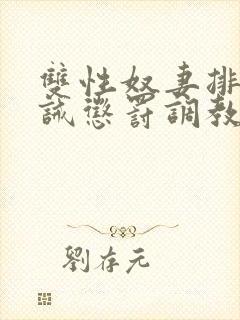 雙性奴妻排
誡懲罰調教
劉存元